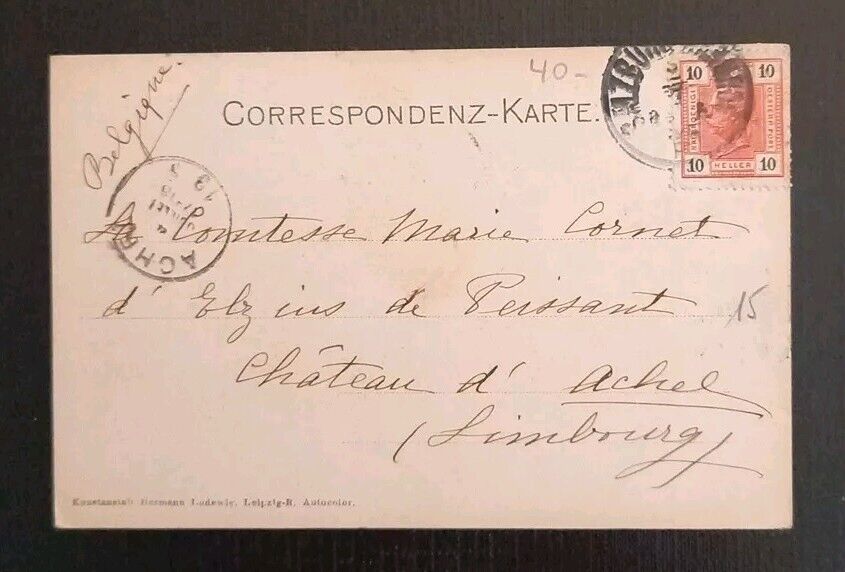 40-
CORRESPONDENZ-KARTE.
Belgique.
10 10
10 HELLER 10
ACHEL
La Comtesse Marie Cornet
d'Elzius de Peissant
15
Château d'Achel
(Limbourg)
Kunstanstalt Hermann Ludewig, Leipzig-R. Autocolor.